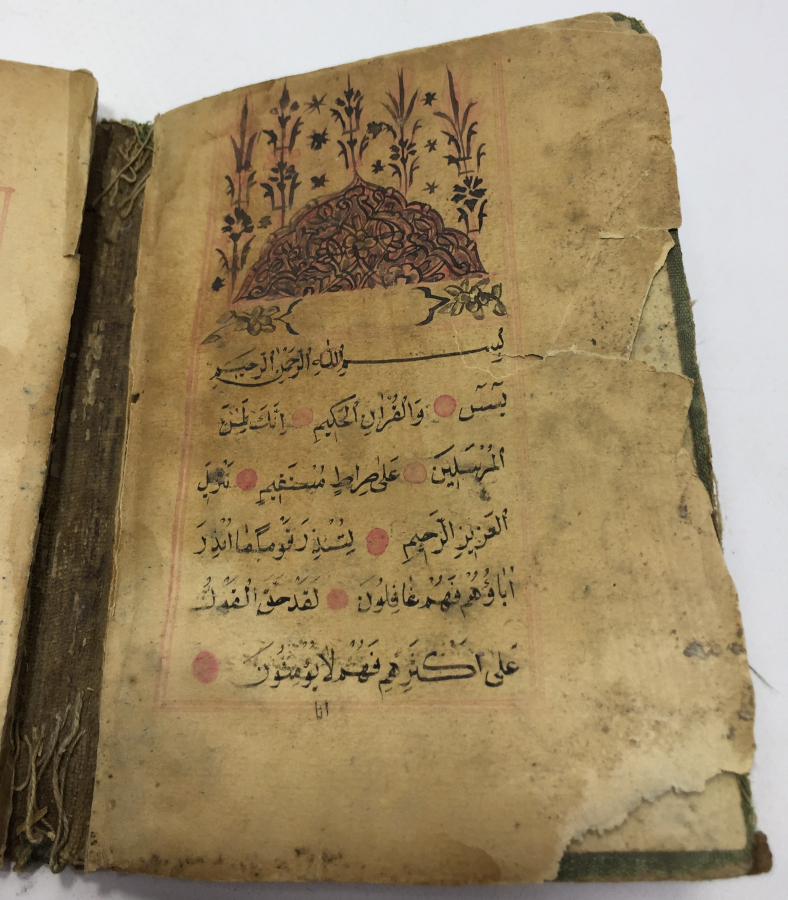 بِسْمِ اللهِ الرَّحْمٰنِ الرَّحِيمِ
يٰسٓ وَالْقُرْاٰنِ الْحَكِيمِ اِنَّكَ لَمِنَ
الْمُرْسَلِينَ عَلٰى صِرَاطٍ مُسْتَقِيمٍ تَنْزِيلَ
الْعَزِيزِ الرَّحِيمِ لِتُنْذِرَ قَوْمًا مَا اُنْذِرَ
اٰبَاؤُهُمْ فَهُمْ غَافِلُونَ لَقَدْ حَقَّ الْقَوْلُ
عَلٰى اَكْثَرِهِمْ فَهُمْ لَا يُؤْمِنُونَ
انا